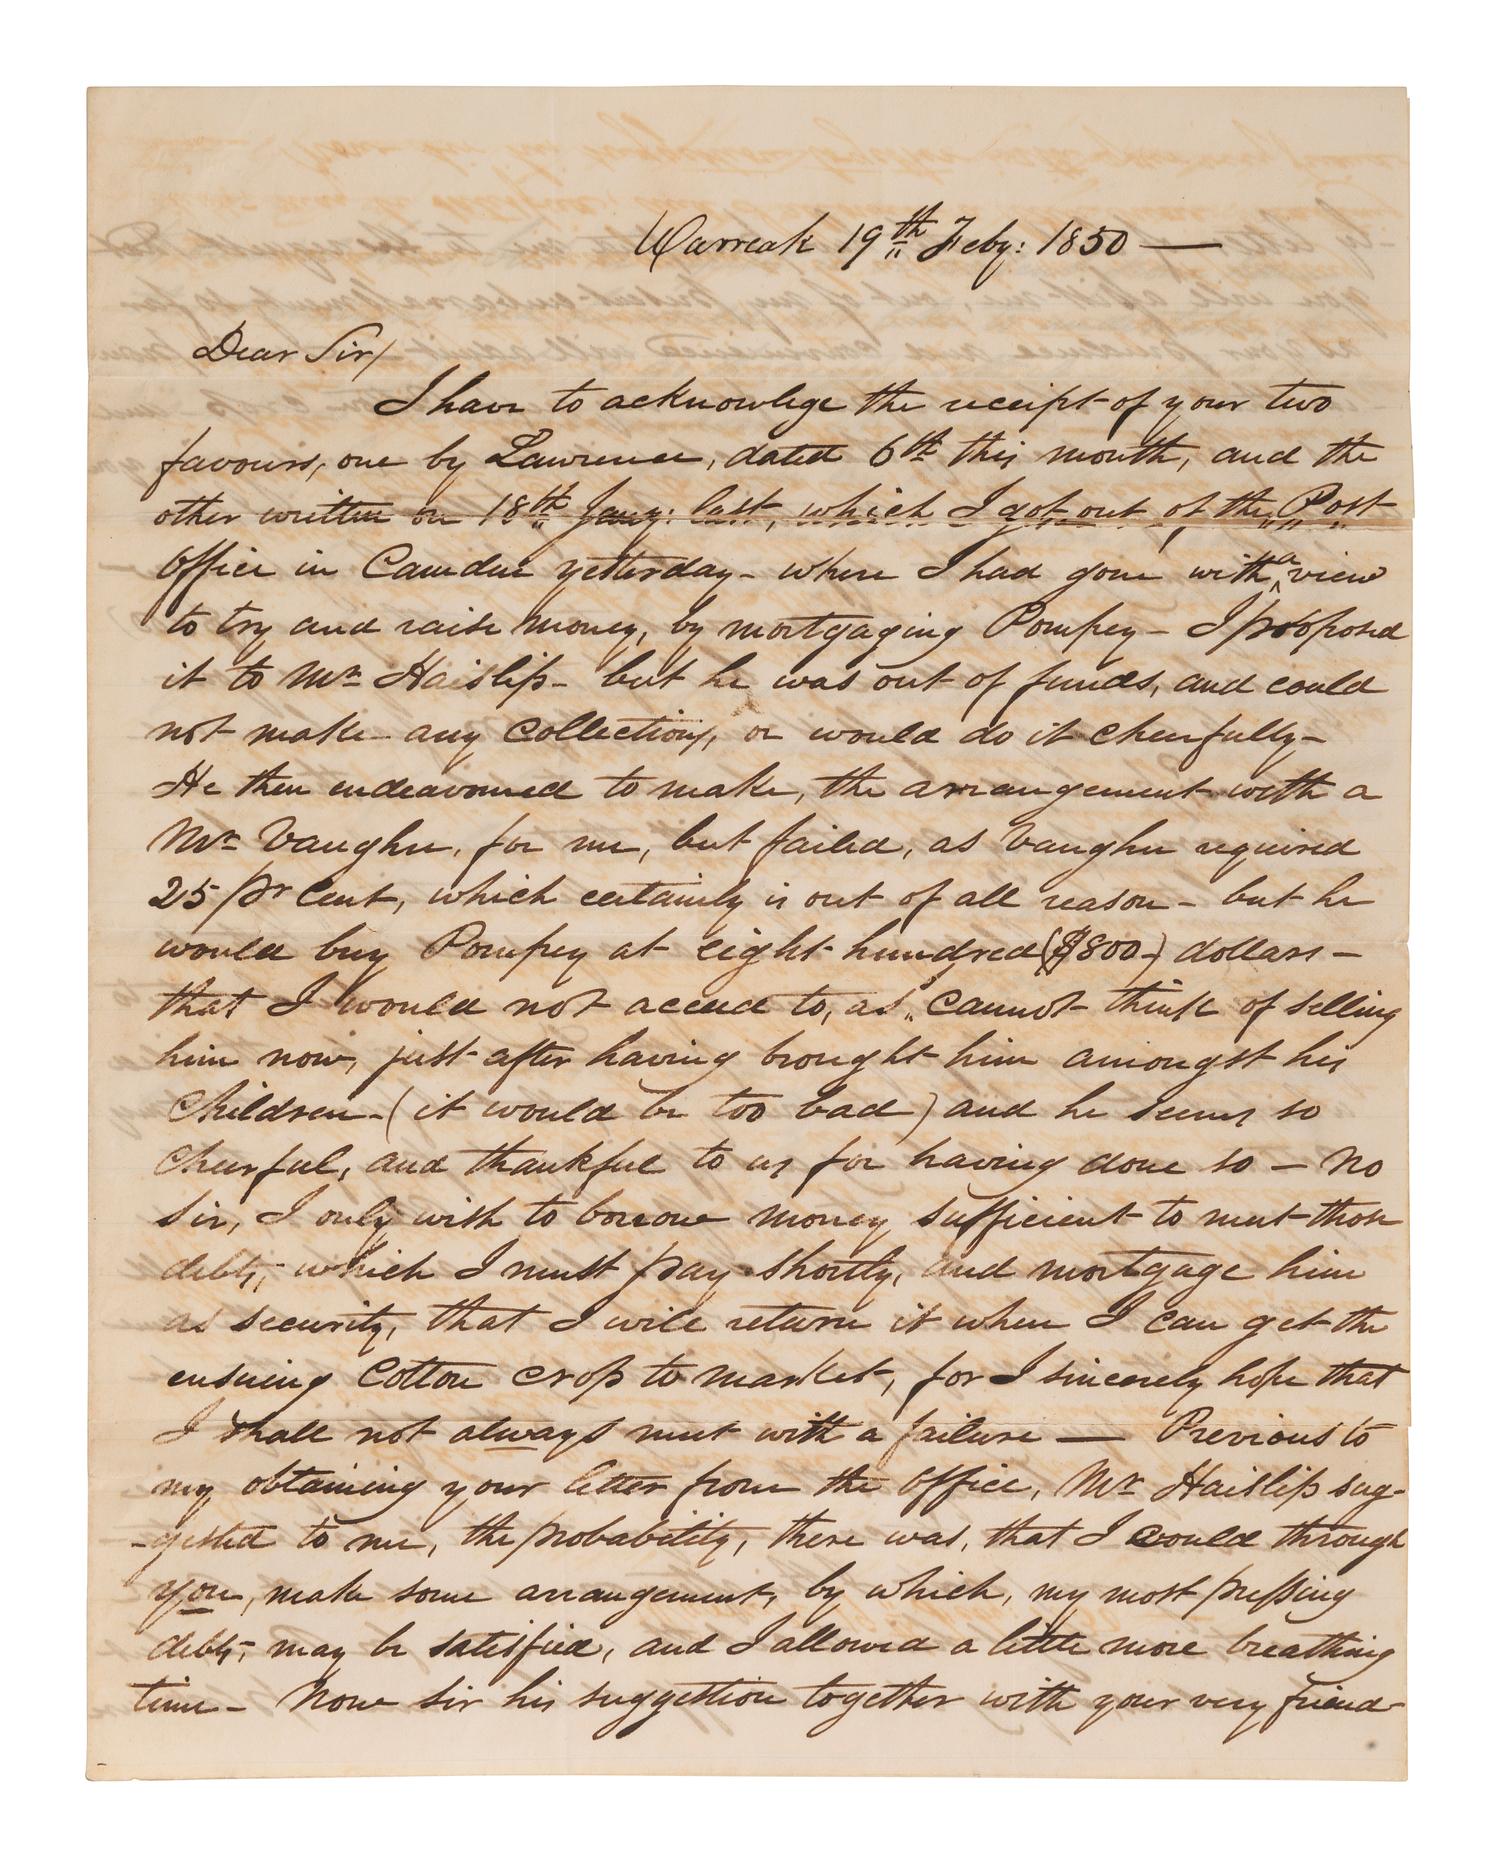 Warreak 19th Feby: 1850 —
Dear Sir/
I have to acknowlege the receipt of your two
favours, one by Lawrence, dated 6th this month, and the
other written on 18th Jany: last, which I got out of the Post
Office in Camden yesterday - where I had gone with a view
to try and raise money, by mortgaging Pompey - I proposed
it to Mr Haislip - but he was out of funds, and could
not make any collections, or would do it cheerfully -
He then endeavoured to make, the arrangement with a
Mr Vaughn, for me, but failed, as Vaughn required
25 pr Cent, which certainly is out of all reason - but he
would buy Pompey at eight hundred ($800-) dollars -
that I would not acceed to, as cannot think of selling
him now, just after having brought him amongst his
children - (it would be too bad) and he seems so
cheerful, and thankful to us for having done so - No
Sir, I only wish to borrow money sufficient to meet those
debts, which I must pay shortly, and mortgage him
as security, that I will return it when I can get the
ensuing Cotton crop to market, for I sincerely hope that
I shall not always meet with a failure — Previous to
my obtaining your letter from the Office, Mr Haislip sug-
-gested to me, the probability, there was, that I could through
you, make some arrangement, by which, my most pressing
debts, may be satisfied, and I allowed a little more breathing
time - Now Sir his suggestion together with your very friend-